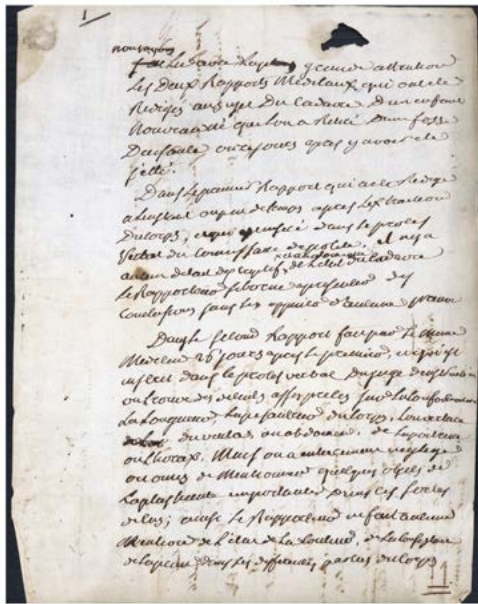 nous avons
lu avec la plus grande attention
Les Deux Rapports Medicaux qui ont ete
Redigés au sujet Du Cadavre D'un enfant
Nouveau né que l'on a Retiré D'une fosse
D'aisance, onze jours apres y avoir ete
jetté.
Dans le premier Rapport qui a ete Redigé
a l'instant ou peu de temps apres l'extraction
Du Corps, et qui est inseré dans le proces
Verbal du Commissaire de police, il n'y a
aucun detail descriptif, de l'etat du Cadavre
Le Rapporteur se borne a presenter des
Conclusions sans les appuyer d'aucune preuve
Dans le second Rapport fait par le meme
Medecin 26 jours apres le premier, et qui est
inseré dans le proces verbal Du juge d'instruction
on trouve des details assez precis sur la conformation
La Longueur, La pesanteur du Corps,
du ventre ou abdomen, de la poitrine
ou thorax. Mais on a entierement negligé
ou omis de Mentionner quelques objets de
la plus haute importance dans ces sortes
de cas; ainsi Le Rapporteur ne fait aucune
Mention de l'etat de la Couleur,
de la peau dans les differentes parties du corps